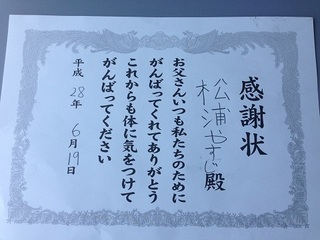 感謝状
松浦やすじ殿
お父さんいつも私たちのために
がんばってくれてありがとう
これからも体に気をつけて
がんばってください
平成28年6月19日